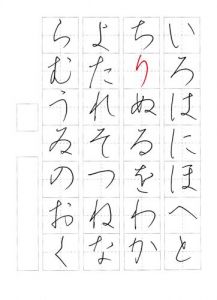 いろはにほへと
ちりぬるをわか
よたれそつねな
らむうゐのおく